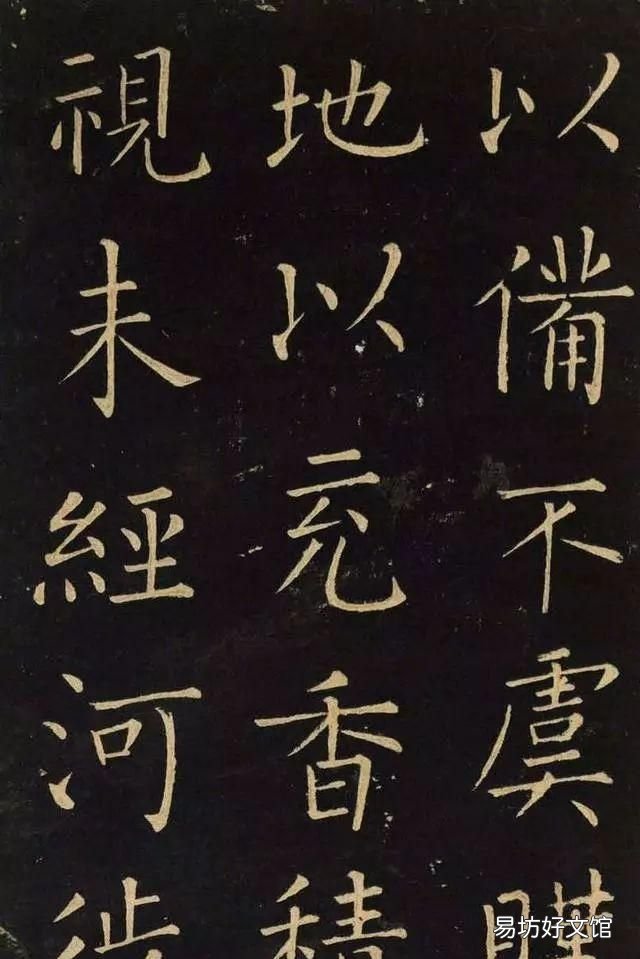 以備不虞
地以充香積
視未經河
易坊好文馆